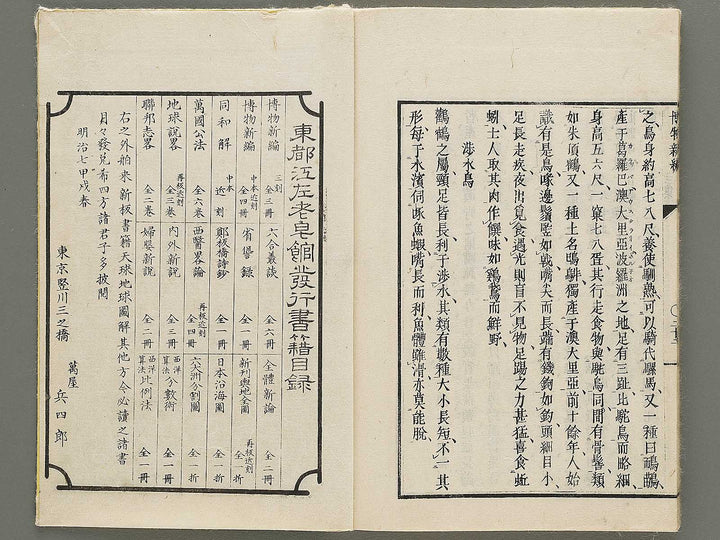 之鳥身約高七八尺養使馴熟可以騎代驢馬又一種曰鴯鶓
產于葛羅巴澳大里亞波羅洲之地足有三趾比駝鳥而略細
身高五六尺一窠七八蛋其行走食物與駝鳥同間有骨髻類
如朱頂鶴又一種土名鴫鴕獨產于澳大里亞前十餘年人始
識有是鳥喙邊鬚豎如戟嘴尖而長端有鐵鉤如鉤頭細目小
足長走疾夜出覓食遇光則盲不見物足踢之力甚猛喜食蚯
蚓土人取其肉作饌味如鷄鶩而鮮野
涉水鳥
鸛鶴之屬頸足皆長利于涉水其類有數種大小長短不一其
形每于水濱伺啄魚蝦嘴長而利魚體雖滑亦莫能脫
東都江左老皂館發行書籍目錄
博物新編 三刻 全三冊 六合叢談 全六冊 全體新論 全二冊
博物新編 中本近刻 全四冊 省諐錄 全一冊 新刊輿地全圖 再板近刻 全一冊
同和解 中本近刻 鄭板橋詩鈔 全一冊 日本沿海圖 全一折
萬國公法 全六卷 西醫畧論 再板近刻 全四冊 六大洲分割圖 全一折
地球說畧 再板近刻 全三卷 內外新說 全三冊 西洋算法分數術 全一冊
聯邦志畧 全二卷 婦嬰新說 全二冊 西洋算法比例法 全一冊
右之外舶來新板書籍天球地球圖解其他方今必讀之諸書
月々發兌希四方諸君子多披閱
明治七甲戌春
東京竪川三之橋
萬屋
兵四郎